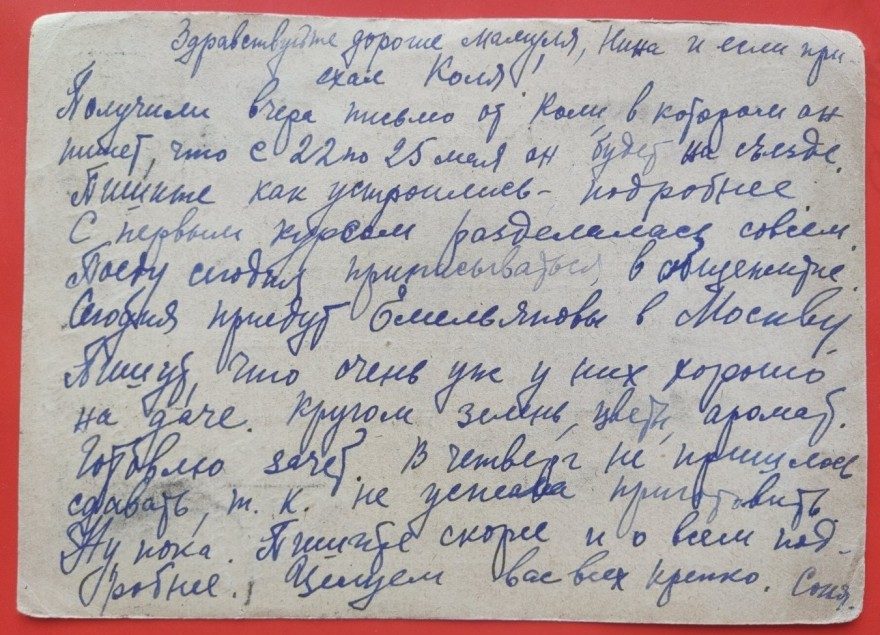 Здравствуйте дорогие Мамуля, Нина и если при-
ехал Коля!
Получили вчера письмо от Коли, в котором он
пишет, что с 22 по 25 мая он будет на съезде.
Пишите как устроились, подробнее.
С первым курсом разделалась совсем.
Поеду сегодня приписываться в общежитие.
Сегодня приедут Емельяновы в Москву.
Пишут, что очень уж у них хорошо
на даче. Кругом зелень, цветы, аромат.
Готовлю зачет. В четверг не пришлось
сдавать, т. к. не успела приготовить
Ну пока. Пишите скорее и о всем под-
робнее. Целуем вас всех крепко. Соня.